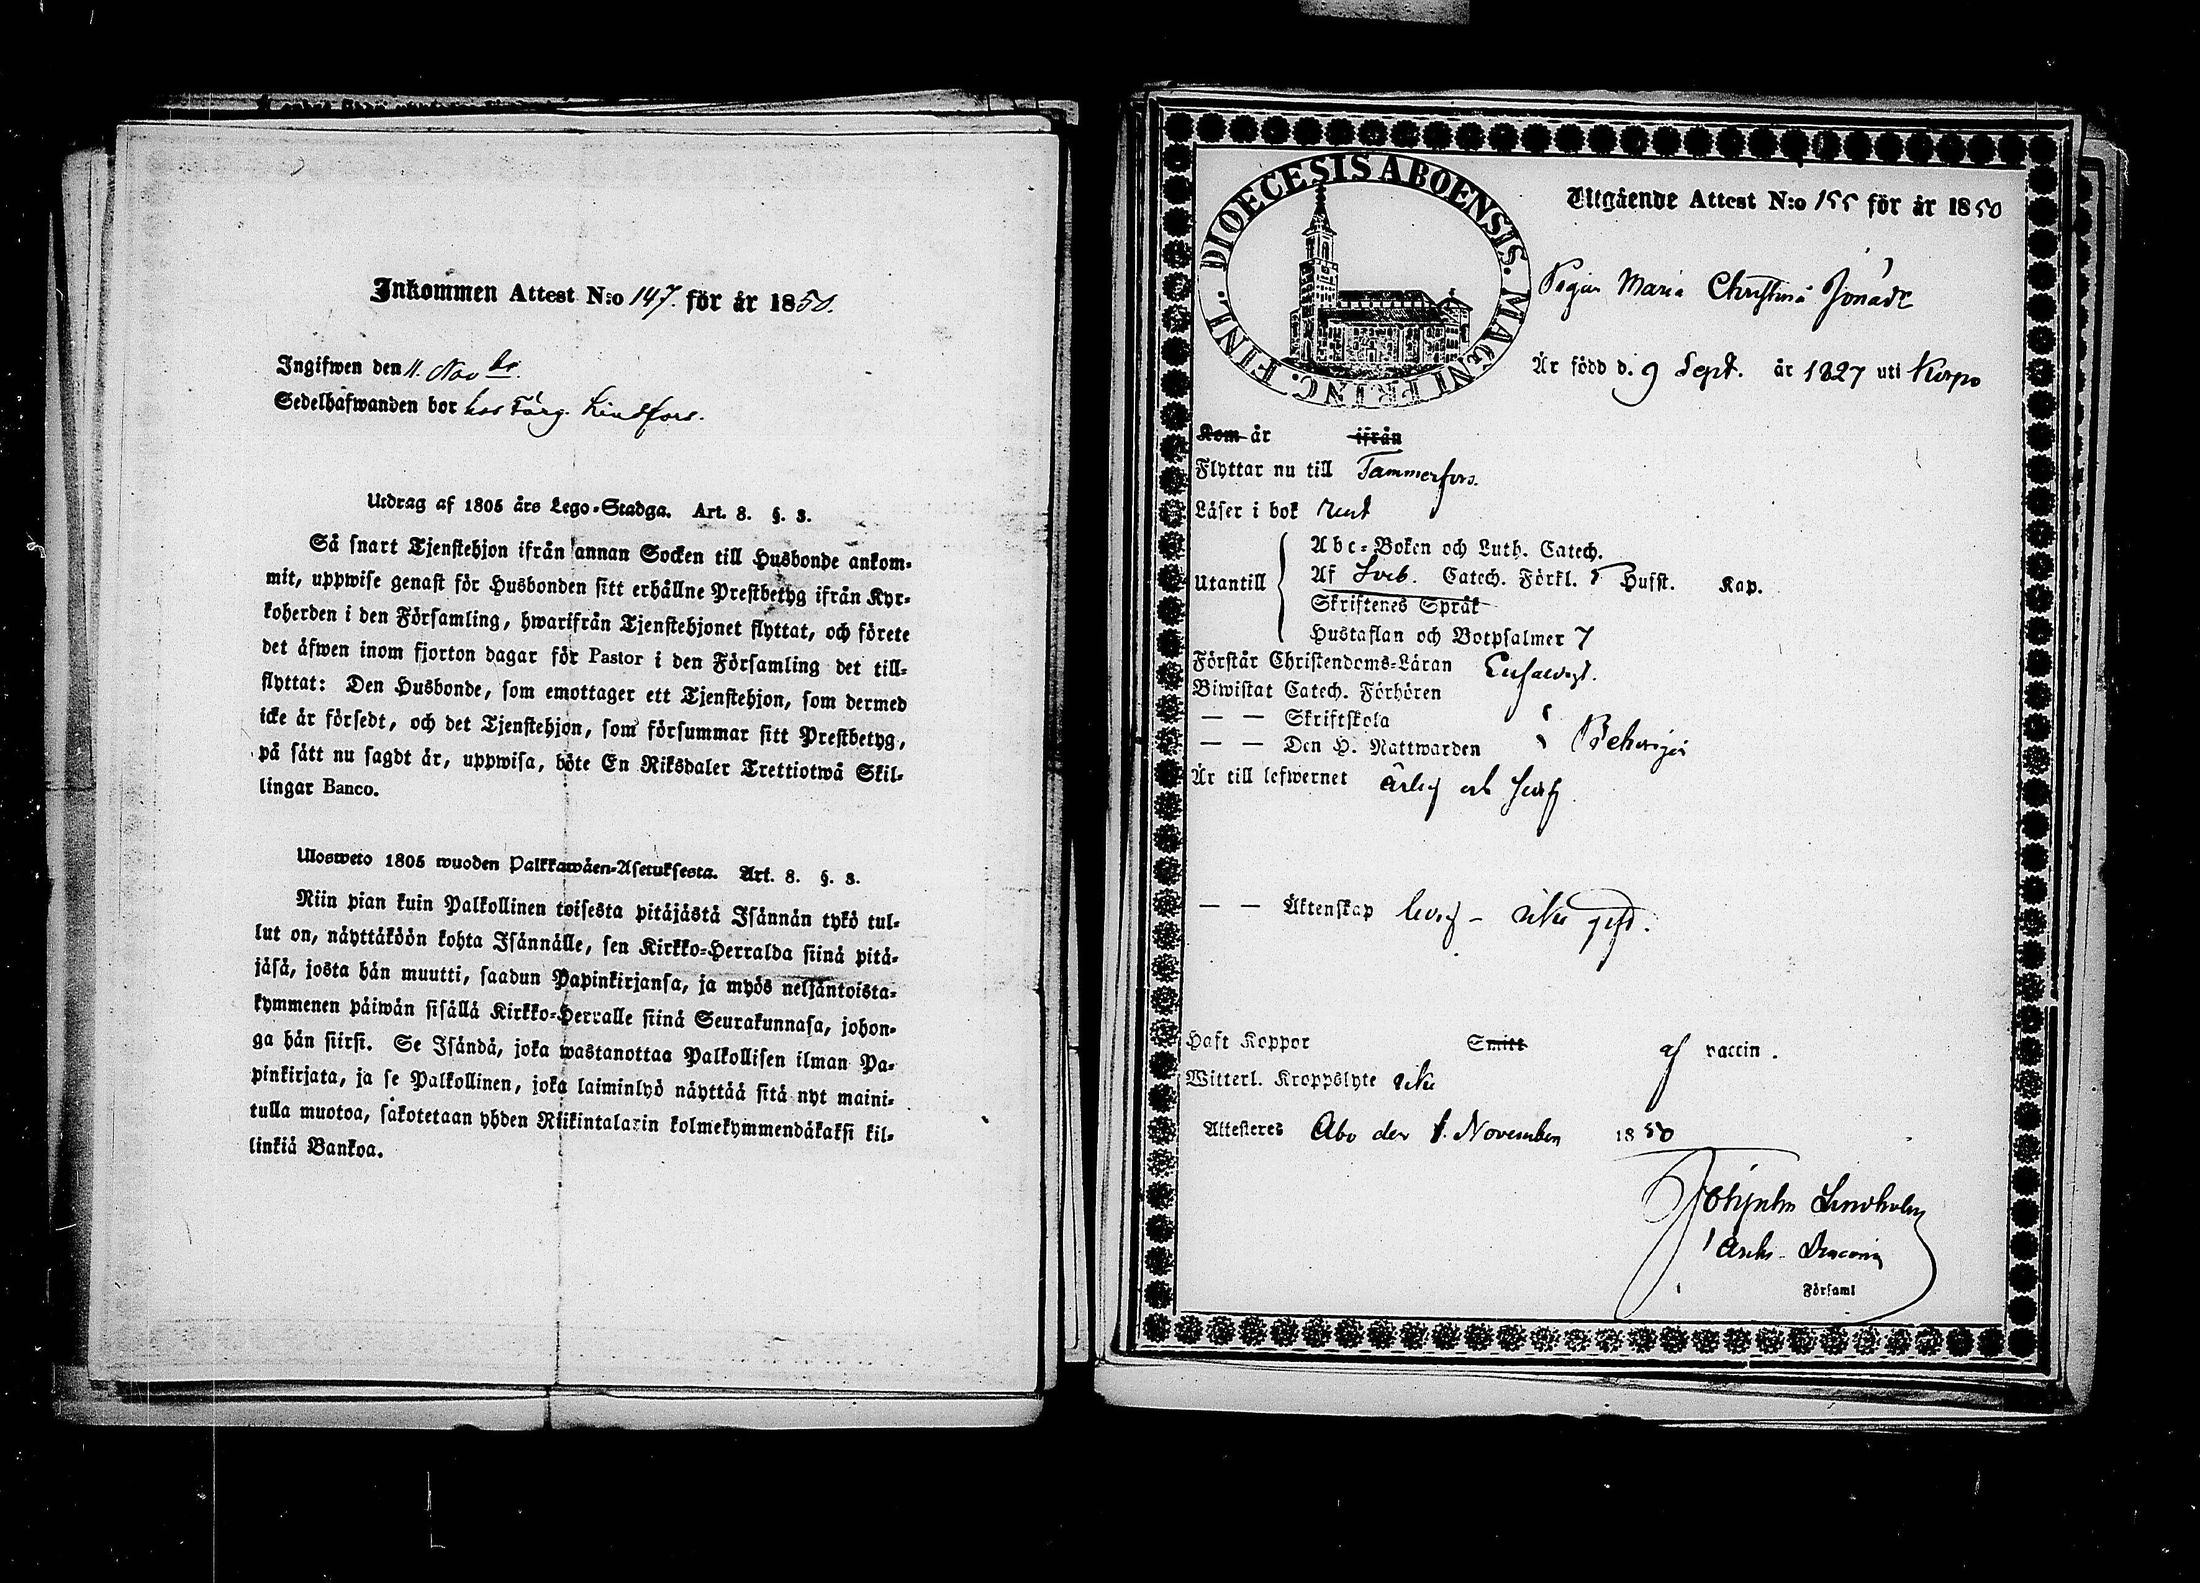 Inkommen Attest N:o 147. för år 1850.
Ingifwen den 11. Novbr.
Sedelhafwanden bor hos Färg. Lindfors.
Utdrag af 1805 års Lego-Stadga. Art. 8. §. 3.
Så snart Tjenstehjon ifrån annan Socken till Husbonde ankom-
mit, uppwise genast för Husbonden sitt erhållne Prestbetyg ifrån Kyr-
koherden i den Församling, hwarifrån Tjenstehjonet flyttat, och förete
det äfwen inom fjorton dagar för Pastor i den Församling det till-
flyttat: Den Husbonde, som emottager ett Tjenstehjon, som dermed
icke är försedt, och det Tjenstehjon, som försummar sitt Prestbetyg,
på sätt nu sagdt är, uppwisa, böte En Riksdaler Trettiotwå Skil-
lingar Banco.
Ulosweto 1805 wuoden Palkkawäen-Asetuksesta. Art. 8. §. 3.
Niin pian kuin Palkollinen toisesta pitäjästä Isännän tykö tul-
lut on, näyttäköön kohta Isännälle, sen Kirkko-Herralda siinä pitä-
jäsä, josta hän muutti, saadun Papinkirjansa, ja myös neljäntoista-
kymmenen päiwän sisällä Kirkko-Herralle siinä Seurakunnasa, johon-
ga hän siirsi. Se Isändä, joka wastanottaa Palkollisen ilman Pa-
pinkirjata, ja se Palkollinen, joka laiminlyö näyttää sitä nyt maini-
tulla muotoa, sakotetaan yhden Riikintalarin kolmekymmendäkaksi kil-
linkiä Bankoa.
DIOECESIS ABOENSIS. MAGNI PRINC. FINL.
Utgående Attest N:o 155 för år 1850
Pigan Maria Christina
Är född d. 9 Sept. år 1827 uti Korpo
Kom år ifrån
Flyttar nu till Tammerfors.
Läser i bok rent
Utantill
Abc-Boken och Luth. Catech.
Af Sveb. Catech. Förkl. Husst. Kap.
Skriftenes Språk
Hustaflan och Botpsalmer 7
Förstår Christendoms-Läran Enfaldigt.
Biwistat Catech. Förhören
— — Skriftskola
— — Den H. Nattwarden Behörigen
Är till lefwernet ärlig och
— — Äktenskap ledig - icke gift.
Haft Koppor Smitt af vaccin.
Witterl. Kroppslyte icke
Attesteres Åbo den 1. November 1850
Lindholm
Församl